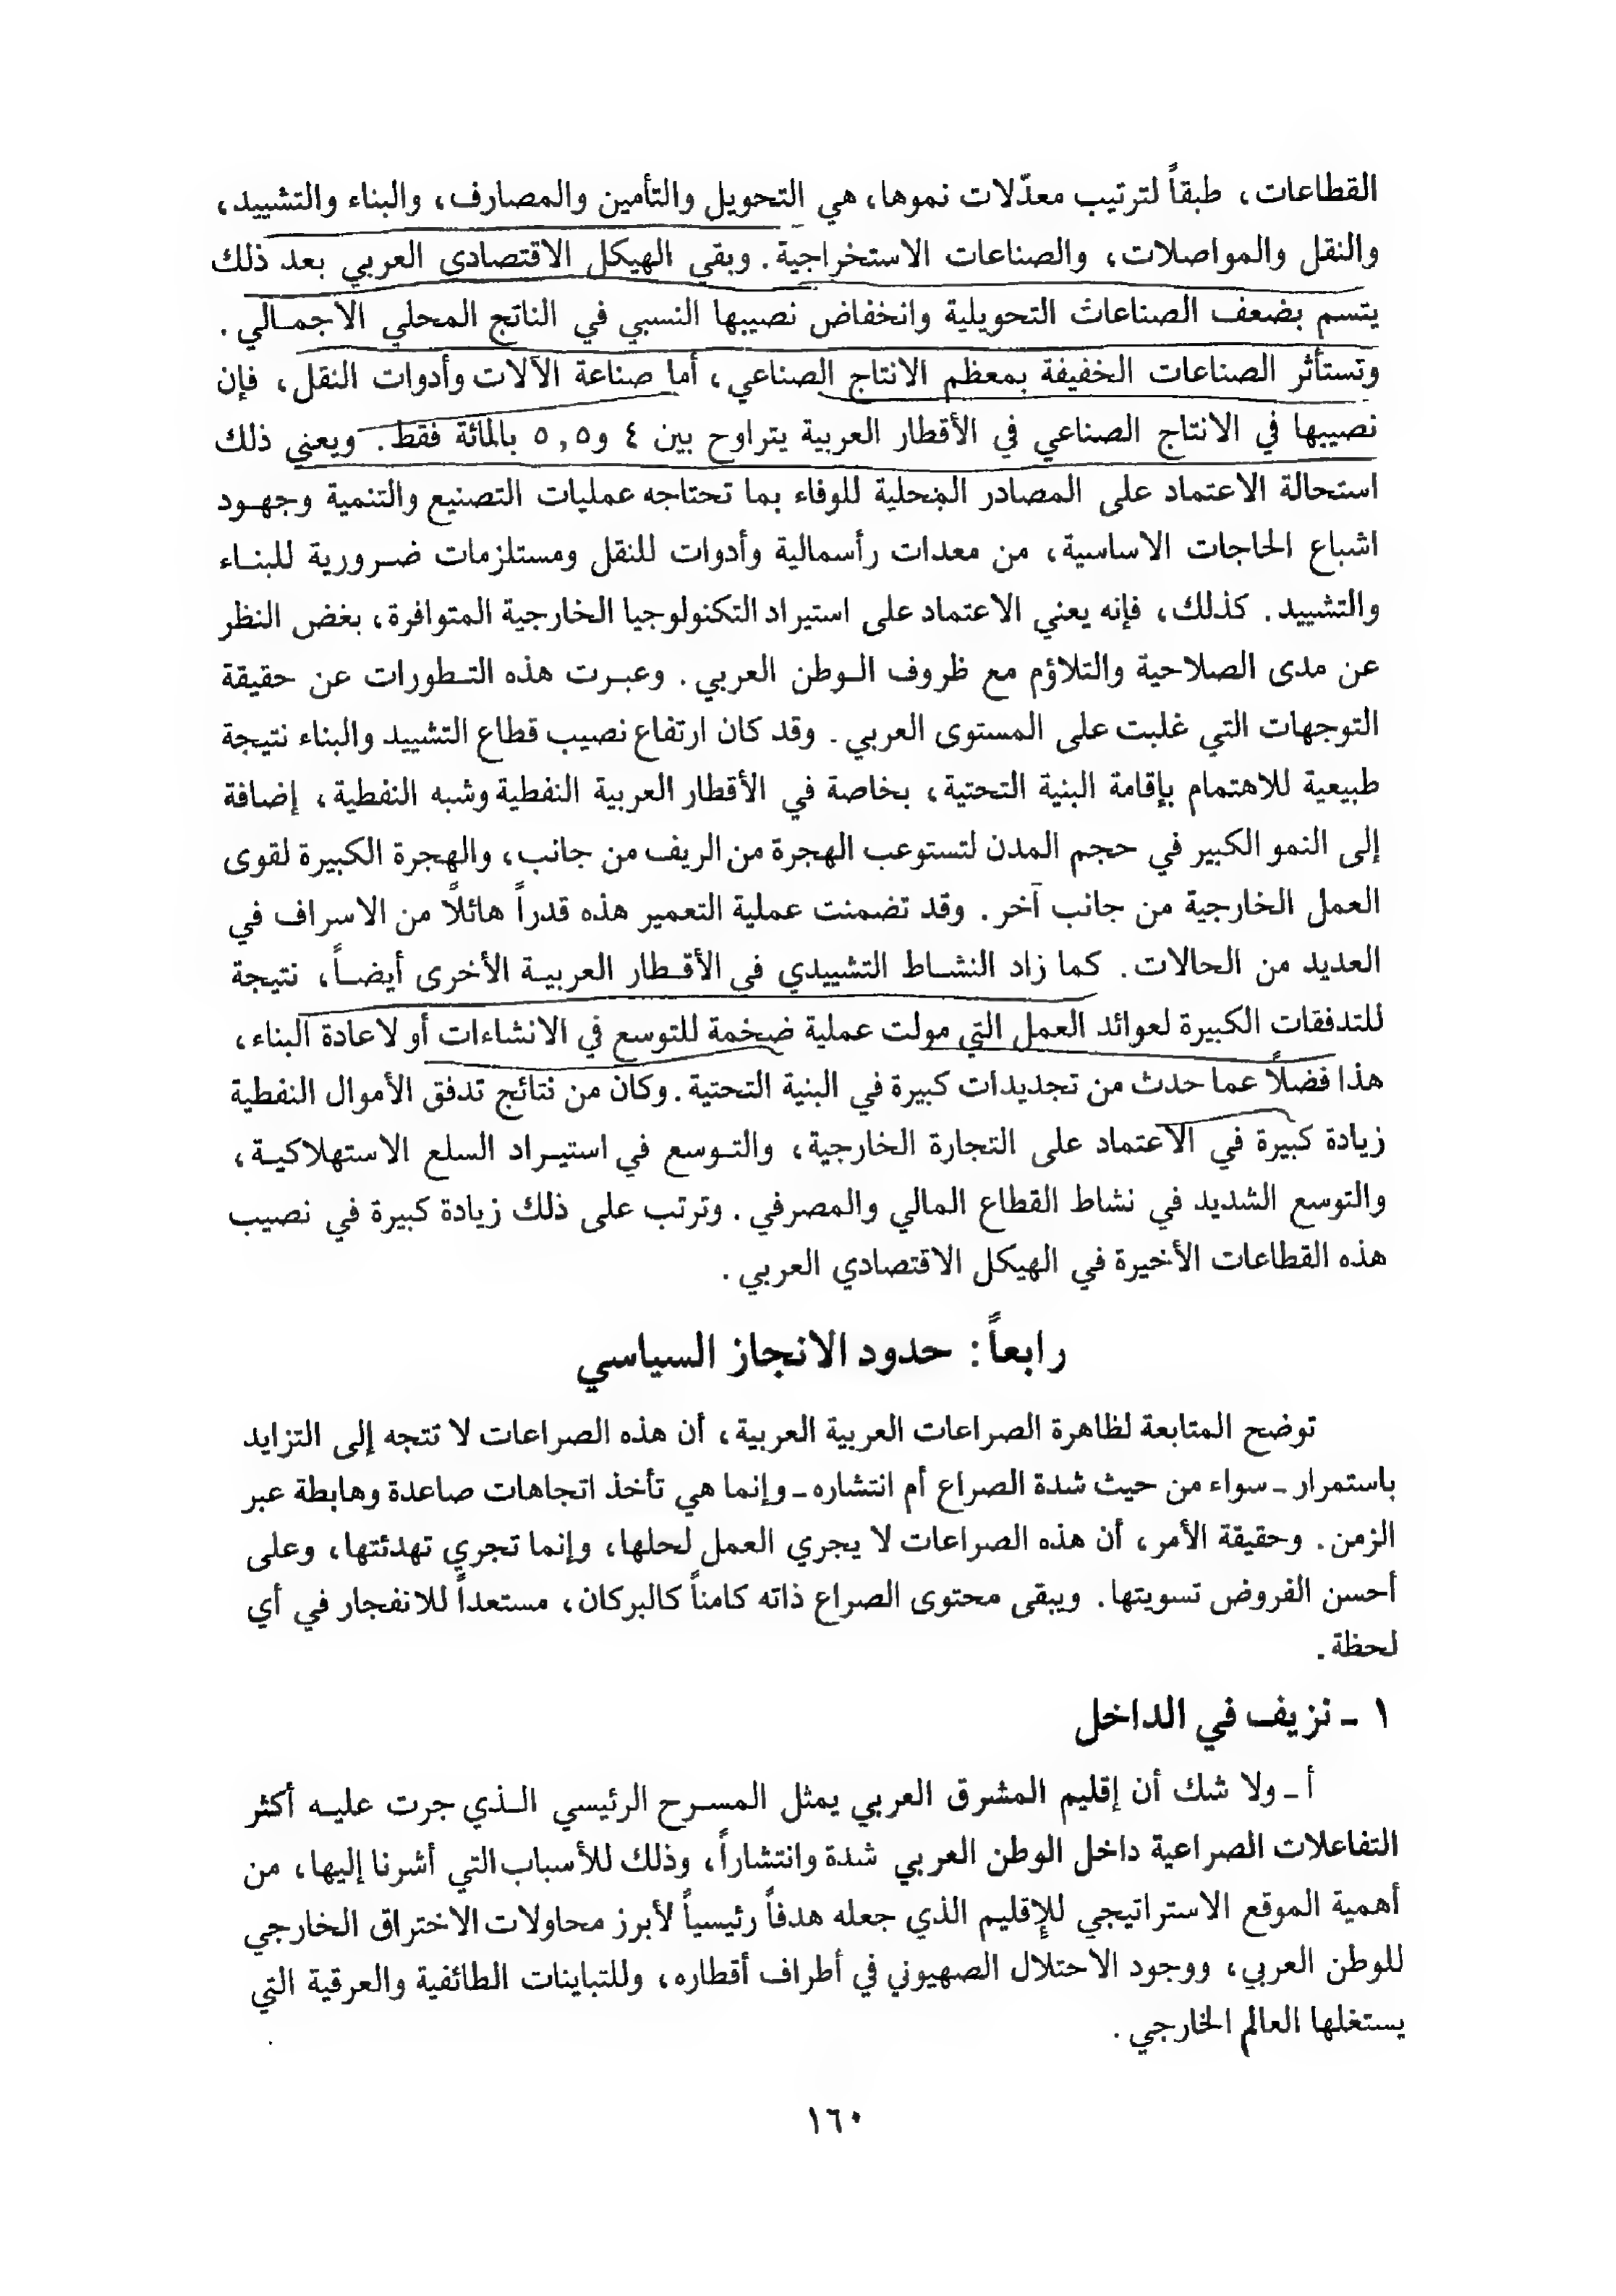 القطاعات، طبقاً لترتيب معدّلات نموها، هي التحويل والتأمين والمصارف، والبناء والتشييد،
والنقل والمواصلات، والصناعات الاستخراجية. وبقي الهيكل الاقتصادي العربي بعد ذلك
يتسم بضعف الصناعات التحويلية وانخفاض نصيبها النسبي في الناتج المحلي الاجمالي.
وتستأثر الصناعات الخفيفة بمعظم الانتاج الصناعي، أما صناعة الآلات وأدوات النقل، فإن
نصيبها في الانتاج الصناعي في الأقطار العربية يتراوح بين ٤ و٥,٥ بالمائة فقط. ويعني ذلك
استحالة الاعتماد على المصادر المحلية للوفاء بما تحتاجه عمليات التصنيع والتنمية وجهود
اشباع الحاجات الاساسية، من معدات رأسمالية وأدوات للنقل ومستلزمات ضرورية للبناء
والتشييد. كذلك، فإنه يعني الاعتماد على استيراد التكنولوجيا الخارجية المتوافرة، بغض النظر
عن مدى الصلاحية والتلاؤم مع ظروف الوطن العربي. وعبرت هذه التطورات عن حقيقة
التوجهات التي غلبت على المستوى العربي. وقد كان ارتفاع نصيب قطاع التشييد والبناء نتيجة
طبيعية للاهتمام بإقامة البنية التحتية، بخاصة في الأقطار العربية النفطية وشبه النفطية، إضافة
إلى النمو الكبير في حجم المدن لتستوعب الهجرة من الريف من جانب، والهجرة الكبيرة لقوى
العمل الخارجية من جانب آخر. وقد تضمنت عملية التعمير هذه قدراً هائلاً من الاسراف في
العديد من الحالات. كما زاد النشاط التشييدي في الأقطار العربية الأخرى أيضاً، نتيجة
للتدفقات الكبيرة لعوائد العمل التي مولت عملية ضخمة للتوسع في الانشاءات أو لاعادة البناء،
هذا فضلاً عما حدث من تجديدات كبيرة في البنية التحتية. وكان من نتائج تدفق الأموال النفطية
زيادة كبيرة في الاعتماد على التجارة الخارجية، والتوسع في استيراد السلع الاستهلاكية،
والتوسع الشديد في نشاط القطاع المالي والمصرفي. وترتب على ذلك زيادة كبيرة في نصيب
هذه القطاعات الأخيرة في الهيكل الاقتصادي العربي.
رابعاً: حدود الانجاز السياسي
توضح المتابعة لظاهرة الصراعات العربية العربية، أن هذه الصراعات لا تتجه إلى التزايد
باستمرار ـ سواء من حيث شدة الصراع أم انتشاره ـ وإنما هي تأخذ اتجاهات صاعدة وهابطة عبر
الزمن. وحقيقة الأمر، أن هذه الصراعات لا يجري العمل لحلها، وإنما تجري تهدئتها، وعلى
أحسن الفروض تسويتها. ويبقى محتوى الصراع ذاته كامناً كالبركان، مستعداً للانفجار في أي
لحظة.
١ ـ نزيف في الداخل
أ ـ ولا شك أن إقليم المشرق العربي يمثل المسرح الرئيسي الذي جرت عليه أكثر
التفاعلات الصراعية داخل الوطن العربي شدة وانتشاراً، وذلك للأسباب التي أشرنا إليها، من
أهمية الموقع الاستراتيجي للإقليم الذي جعله هدفاً رئيسياً لأبرز محاولات الاختراق الخارجي
للوطن العربي، ووجود الاحتلال الصهيوني في أطراف أقطاره، وللتباينات الطائفية والعرقية التي
يستغلها العالم الخارجي.
١٦٠